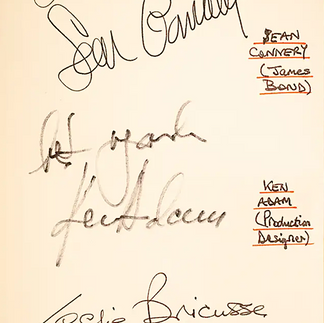 Sean Connery
SEAN
CONNERY
(JAMES
BOND)
best regards
Ken Adam
KEN
ADAM
(Production
Designer)
Leslie Bricusse